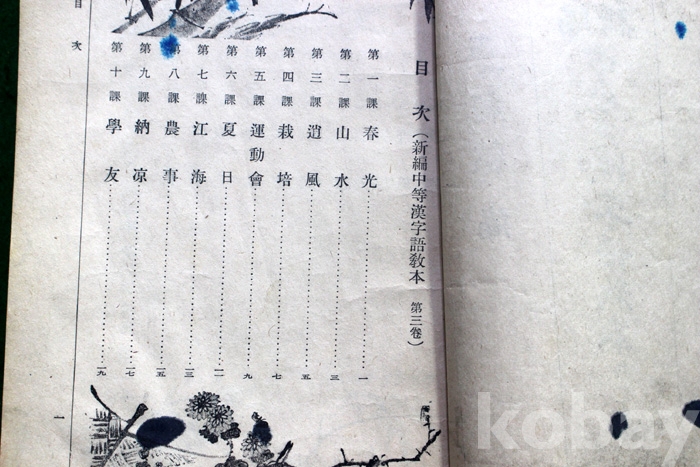 目次（新編中等漢字語敎本 第三卷）
第一課 春光 一
第二課 山水 三
第三課 逍風 五
第四課 栽培 七
第五課 運動會 九
第六課 夏日 一一
第七課 江海 一三
第八課 農事 一五
第九課 納凉 一七
第十課 學友 一九
目次
一
kobay